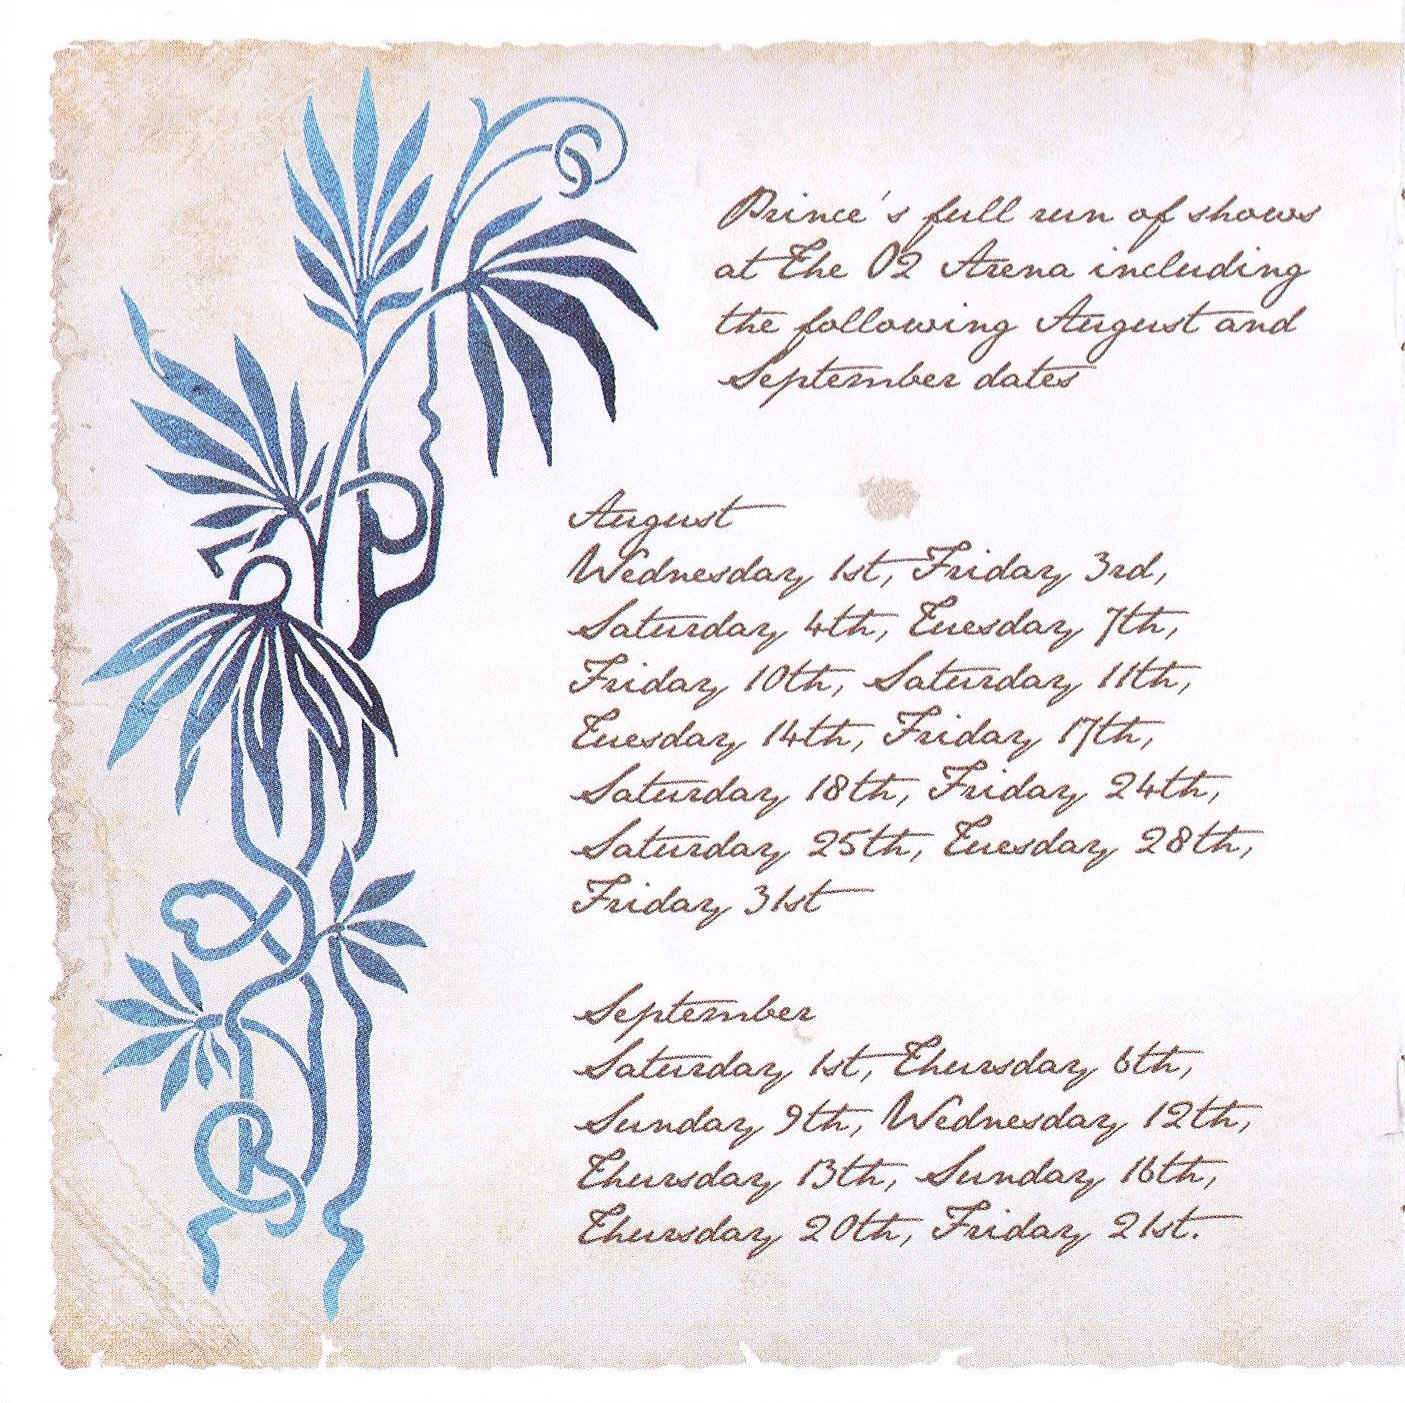 Prince's full run of shows
at The O2 Arena including
the following August and
September dates
August
Wednesday 1st, Friday 3rd,
Saturday 4th, Tuesday 7th,
Friday 10th, Saturday 11th,
Tuesday 14th, Friday 17th,
Saturday 18th, Friday 24th,
Saturday 25th, Tuesday 28th,
Friday 31st
September
Saturday 1st, Thursday 6th,
Sunday 9th, Wednesday 12th,
Thursday 13th, Sunday 16th,
Thursday 20th, Friday 21st.